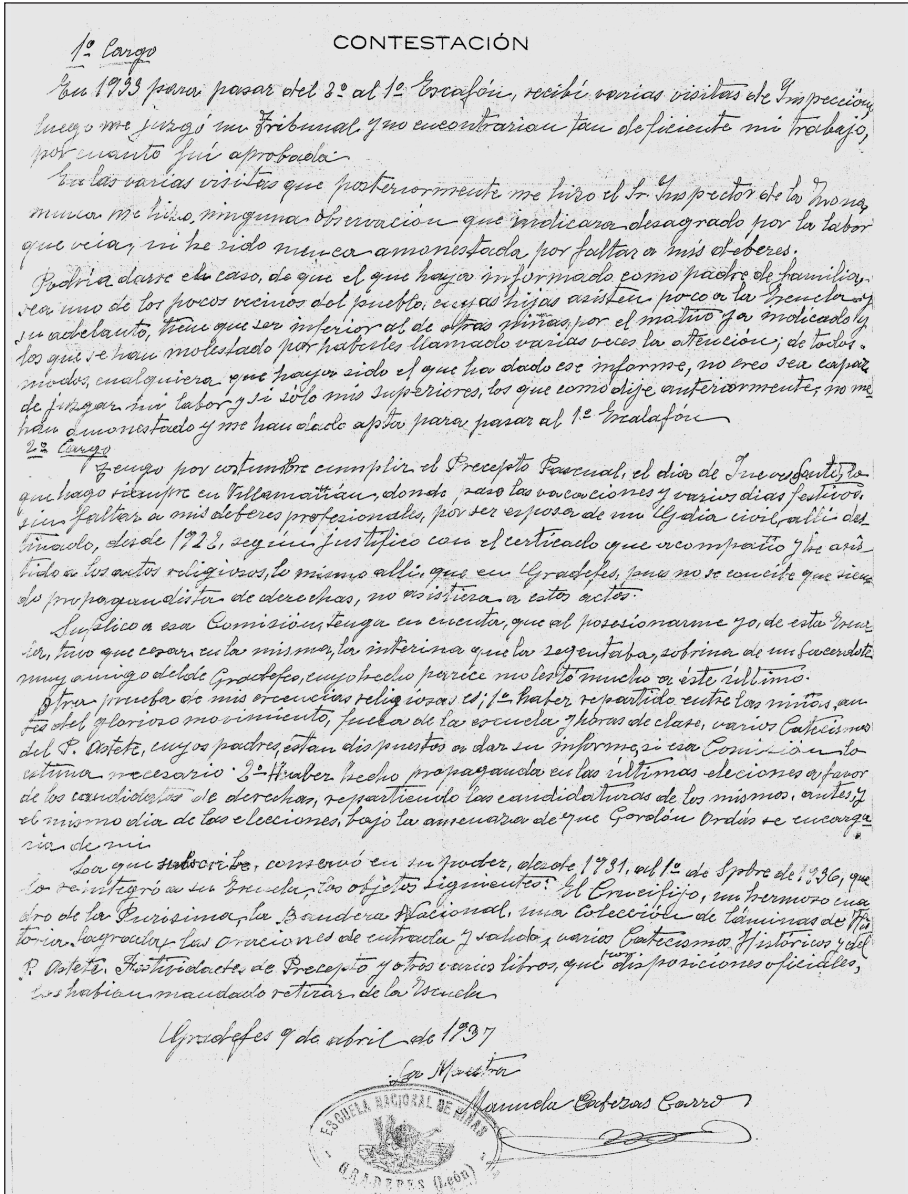 CONTESTACIÓN
1º Cargo
En 1933 para pasar del 2º al 1º Escafón, recibí varias visitas de Inspección,
luego me juzgó un Tribunal y no encontrarian tan deficiente mi trabajo,
por cuanto fuí aprobada
En las varias visitas que posteriormente me hizo el Sr. Inspector de la Zona,
nunca me hizo, ninguna observación que indicara desagrado por la labor
que veia, ni he sido nunca amonestada por faltar a mis deberes.
Podria darse el caso, de que el que haya informado como padre de familia,
sea uno de los pocos vecinos del pueblo, cuyas hijas asisten poco a la Escuela y
su adelanto, tiene que ser inferior al de otras niñas, por el motivo ya indicado y
los que se han molestado por haberles llamado varias veces la atención; de todos
modos, cualquiera que haya sido el que ha dado ese informe, no creo sea capaz
de juzgar mi labor y si sólo mis superiores, los que como dije anteriormente, no me
han amonestado y me han dado apta para pasar al 1º Escalafón
2º Cargo
Tengo por costumbre cumplir el Precepto Pascual, el dia de Jueves Santo, lo
que hago siempre en Villamañán, donde paso las vacaciones y varios dias festivos,
sin faltar a mis deberes profesionales, por ser esposa de un Gdia civil, alli des-
tinado, desde 1928, según justifico con el certicado que acompaño y he asis-
tido a los actos religiosos, lo mismo alli, que en Gradefes, pues no se concibe que sien-
do propagandista de derechas, no asistiera a estos actos.
Suplico a esa Comisión, tenga en cuenta, que al posesionarme yo, de esta Escue-
la, tuvo que cesar en la misma, la interina que la regentaba, sobrina de un sacerdote
muy amigo del de Gradefes, cuyo hecho parece molestó mucho a éste último.
Otra prueba de mis creencias religiosas es; 1º haber repartido entre las niñas, an-
tes del glorioso movimiento, fuera de la escuela y horas de clase, varios Catecismos
del P. Astete, cuyos padres, estan dispuestos a dar su informe, si esa Comisión lo
estima necesario. 2º Haber hecho propaganda en las últimas eleciones a favor
de los candidatos de derechas, repartiendo las candidaturas de los mismos, antes y
el mismo dia de las elecciones, bajo la amenaza de que Gordón Ordas se encarga
ria de mi
La que subscribe, conservó en su poder, desde 1931, al 1º de Spbre de 1936, que
lo reintegró a su Escuela, los objetos siguientes: El Crucifijo, un hermoso cua
dro de la Purisima, la Bandera Nacional, una Colección de láminas de His
toria Sagrada, las oraciones de entrada y salida, varios Catecismos Históricos y del
P. Astete. Festividades de Precepto y otros varios libros, que disposiciones oficiales,
los habian mandado retirar de la Escuela
Gradefes 9 de abril de 1937
La Maestra
Manuela Cabezas Carro
ESCUELA NACIONAL DE NIÑAS
GRADEFES (León)